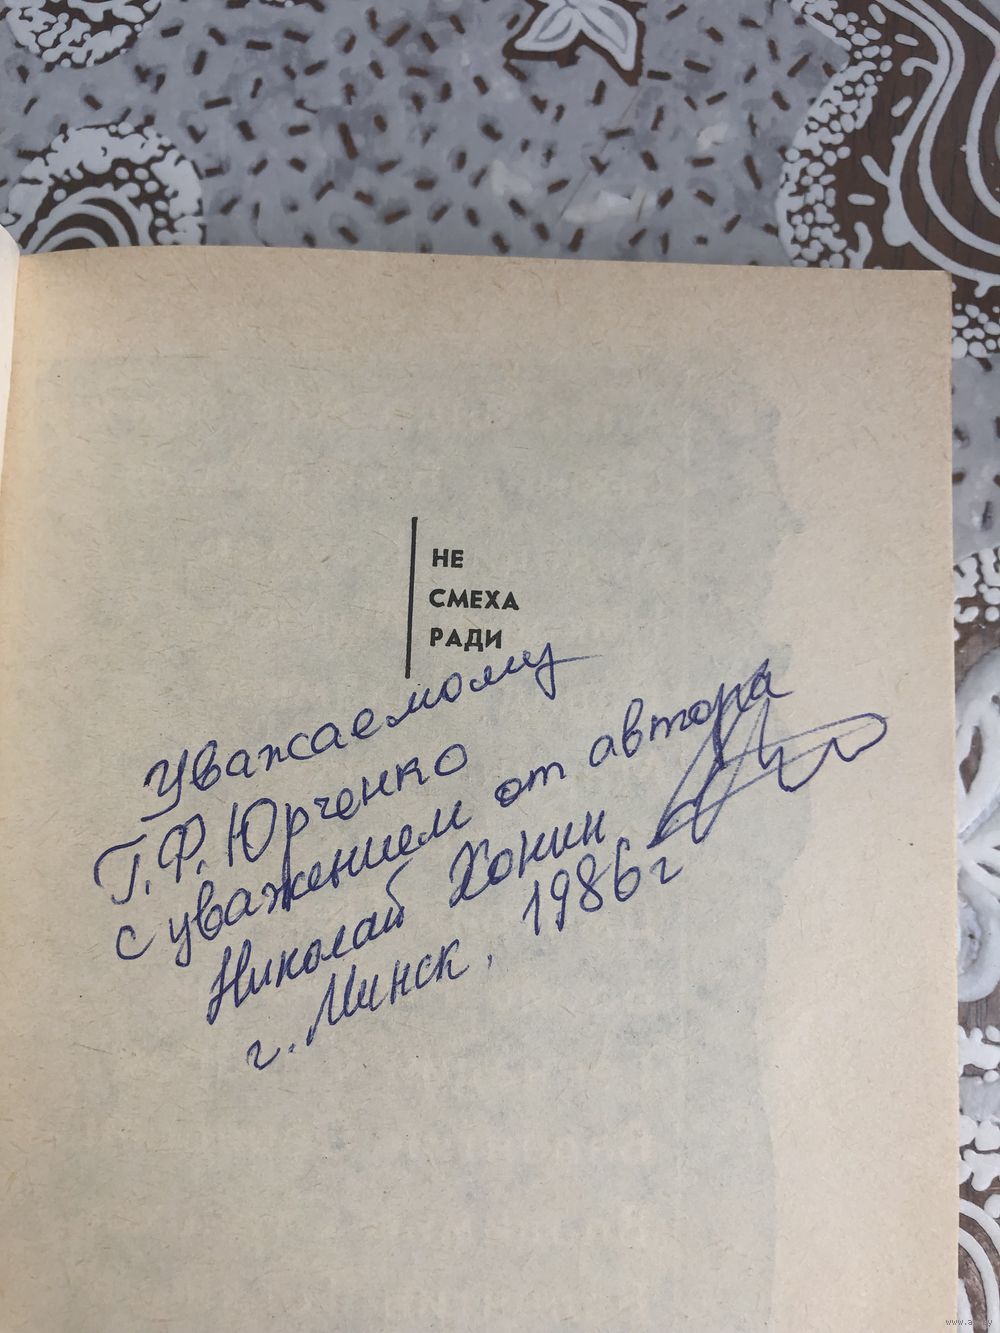 НЕ
СМЕХА
РАДИ
Уважаемому
Г.Ф. Юрченко
с уважением от автора
Николай Хонин.
г. Минск, 1986 г